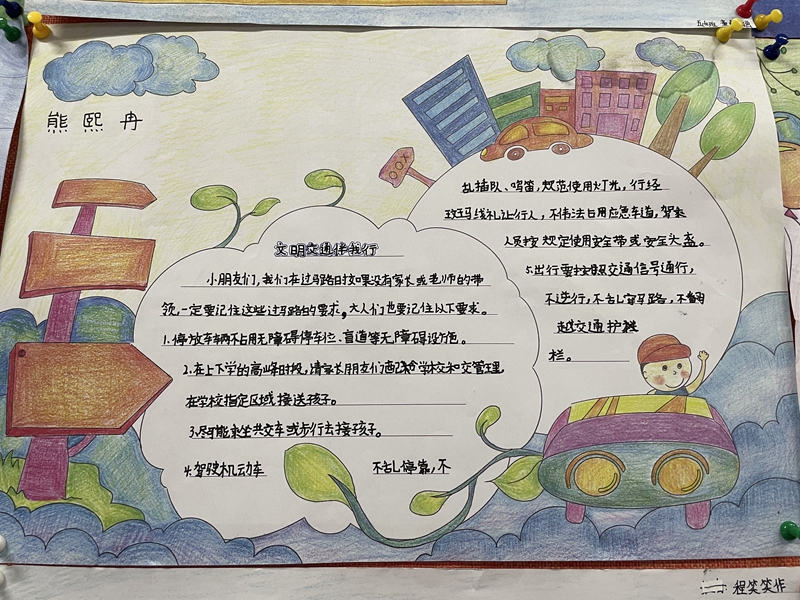 熊熙冉
文明交通伴我行
小朋友们,我们在过马路时如果没有家长或老师的带
领,一定要记住这些过马路的要求,大人们也要记住以下要求。
1.停放车辆不占用无障碍停车位、盲道等无障碍设施。
2.在上下学的高峰时段,请家长朋友们配合学校和交管理,
在学校指定区域接送孩子。
3.尽可能乘坐公交车或步行去接孩子。
4.驾驶机动车 不乱停靠,不
乱插队、鸣笛,规范使用灯光,行经
斑马线礼让行人,不违法占用应急车道,驾乘
人员按规定使用安全带或安全头盔。
5.出行要按照交通信号通行,
不逆行,不乱穿马路,不翻
越交通护栏
栏。
程笑笑作